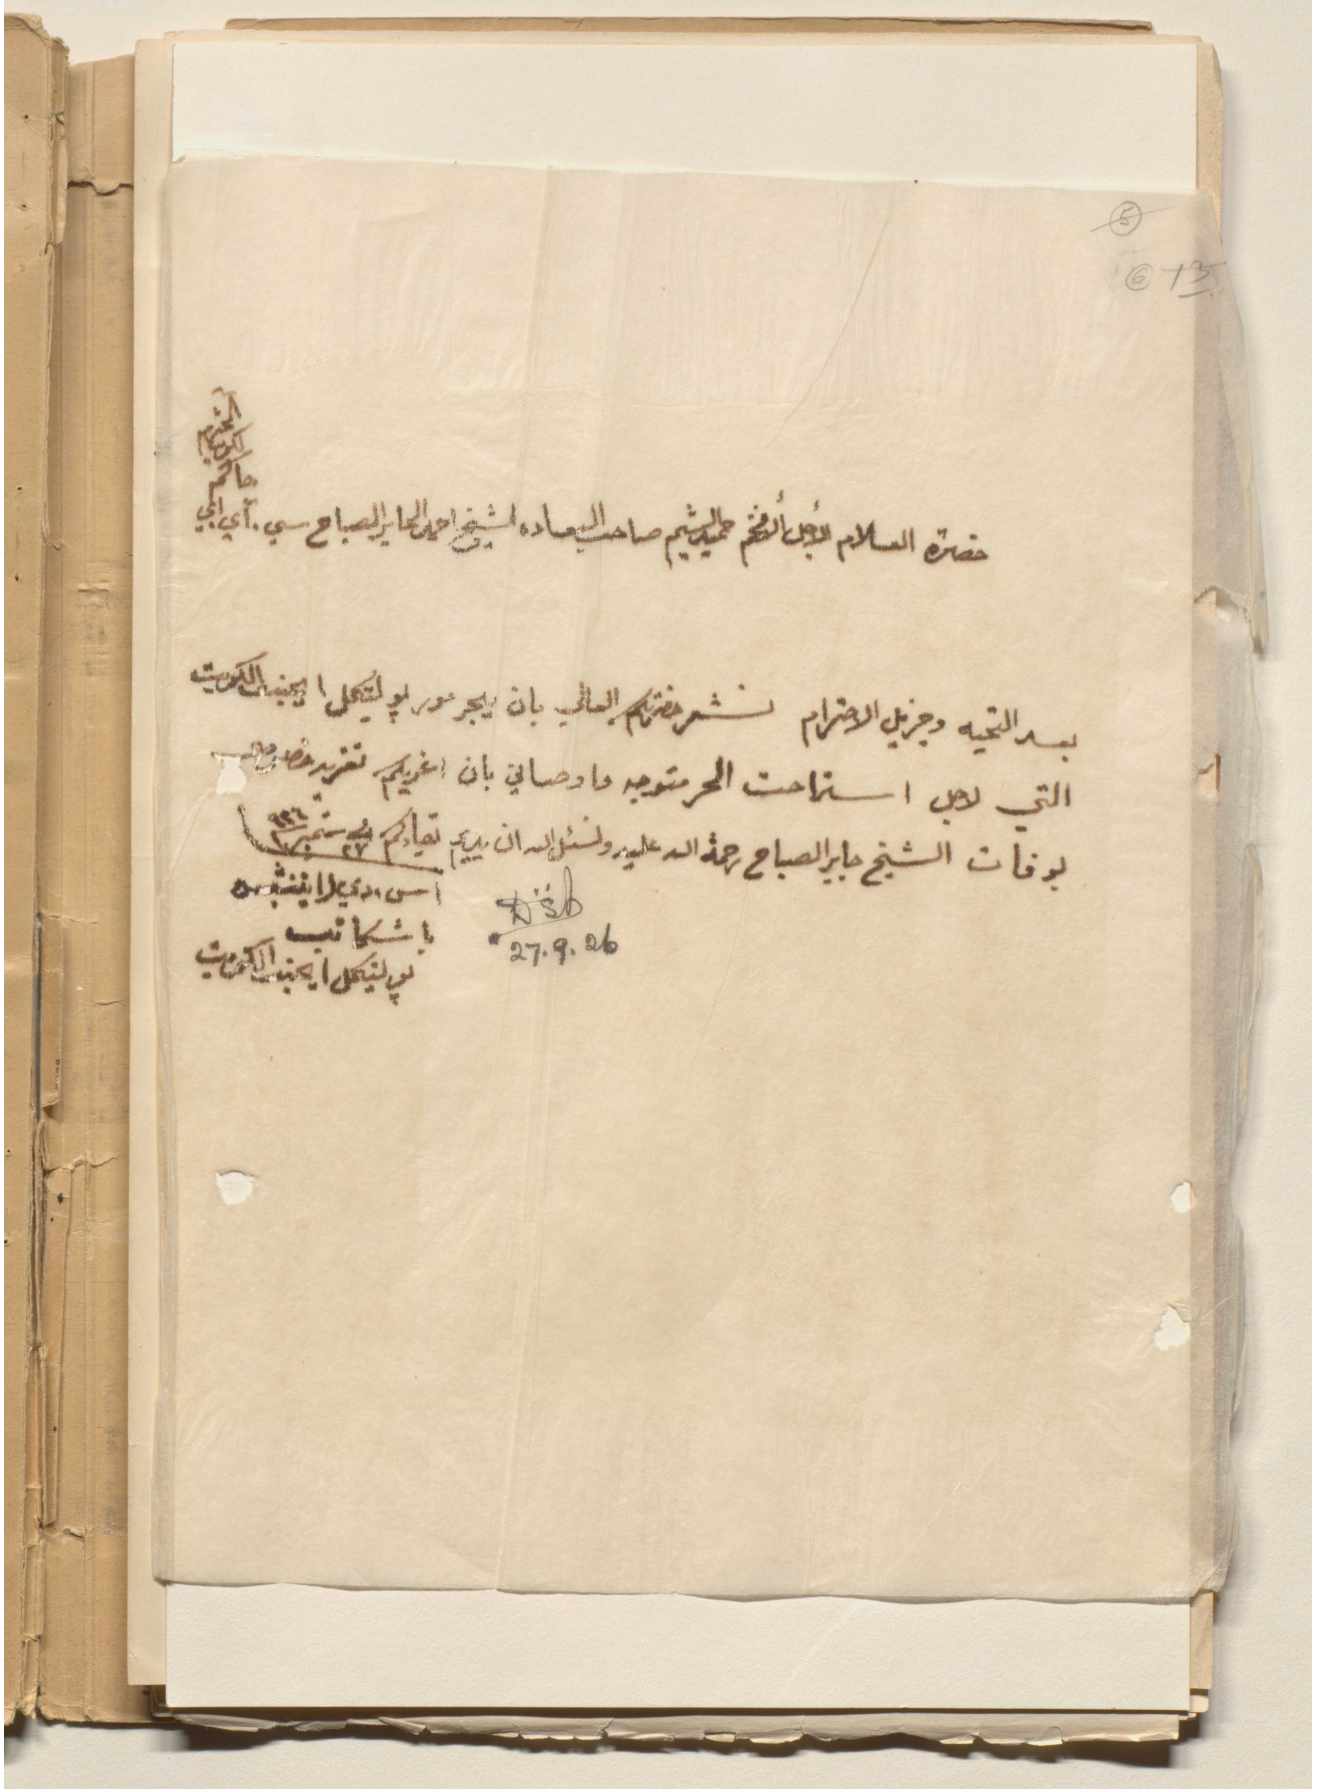 5
6
حضرة العلام الأجل الأفخم حميد الشيم صاحب السعاده الشيخ احمد الجابر الصباح سي . آي اي
حاكم
الكويت
المحترم
بعد التحيه وجزيل الاحترام نشعر حضرتكم العالي بان ميجر مور پوليتكل ايجنت الكويت
التي لاجل استراحت الحر متوجه ما وصاني بان اعزيكم تعزيد
بوفات الشيخ جابر الصباح رحمة الله عليه ونسئل الله ان يديم بقياكم في ٢٧ ستمبر ٩٢٦
اس . دي .
باشكاتب
پوليتكل ايجنت الكويت
27.9.26